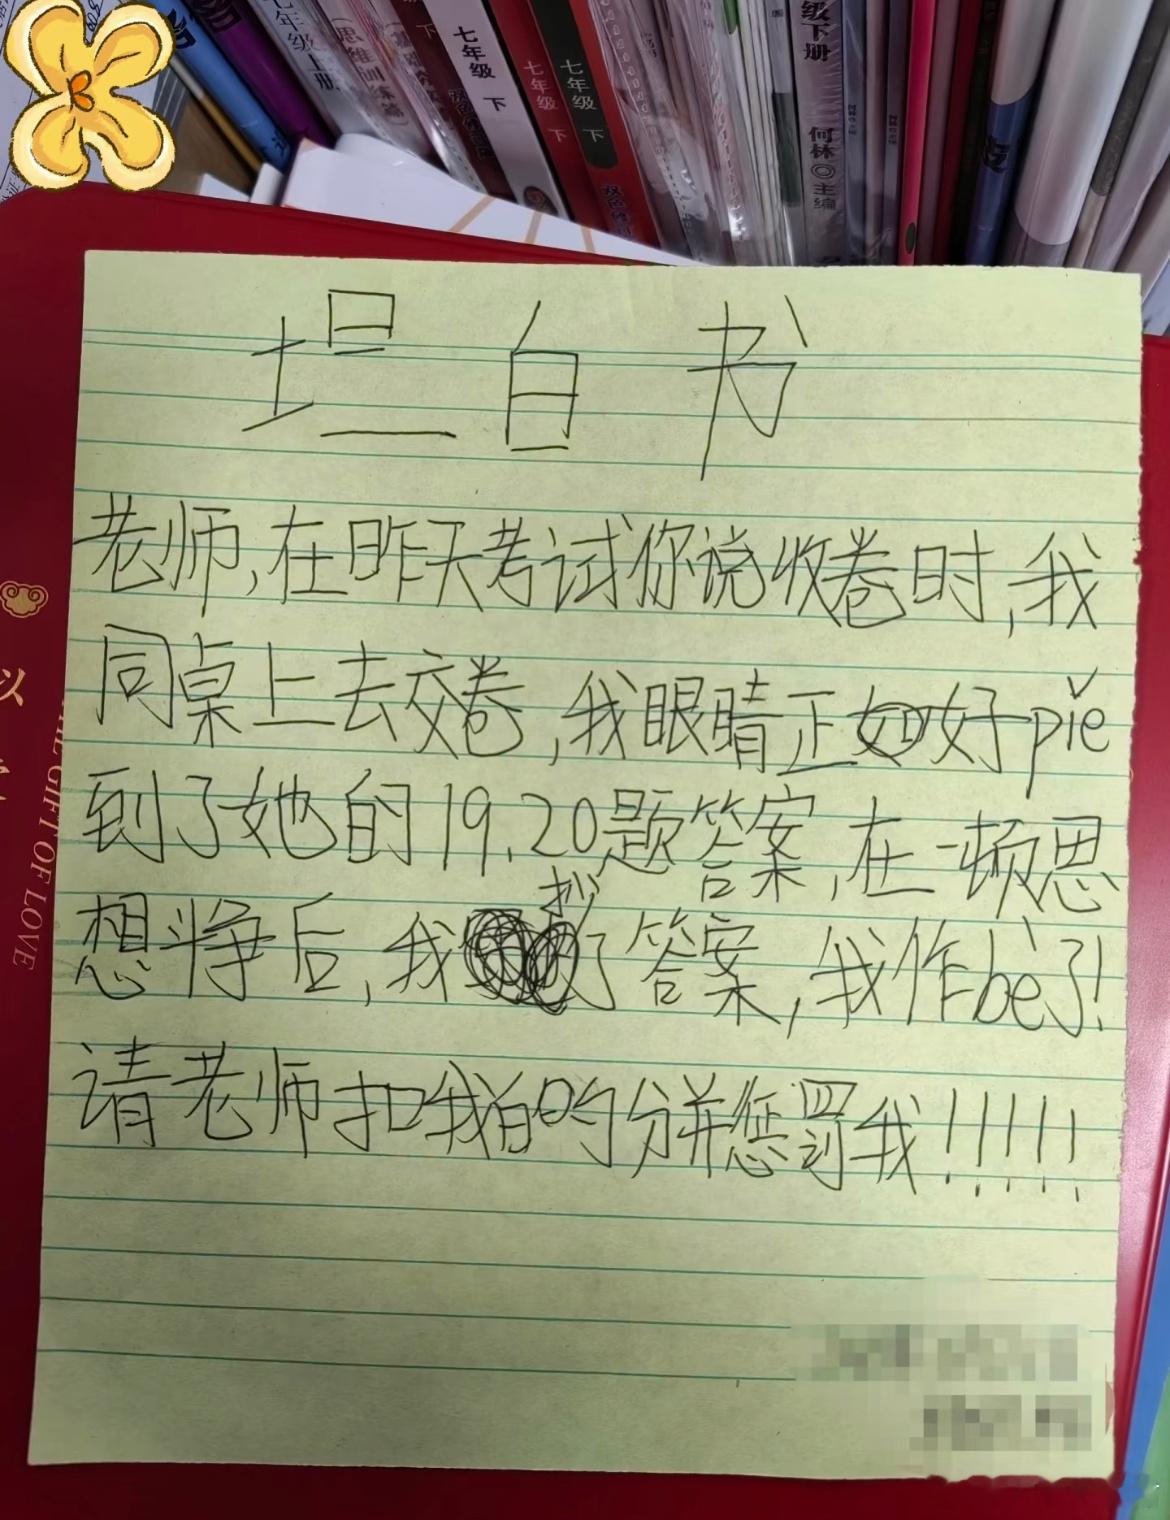 七年级上册
(思维训练篇)
七年级 下
七年级 下
七年级 下
级下册
何林◎主编
以
THE GIFT OF LOVE
坦白书
老师,在昨天考试你说收卷时,我
同桌上去交卷,我眼睛正如好piě
到了她的19.20题答案,在一顿思
想斗争后,我抄了答案,我作bì了!
请老师扣我的分并惩罚我!!!!!